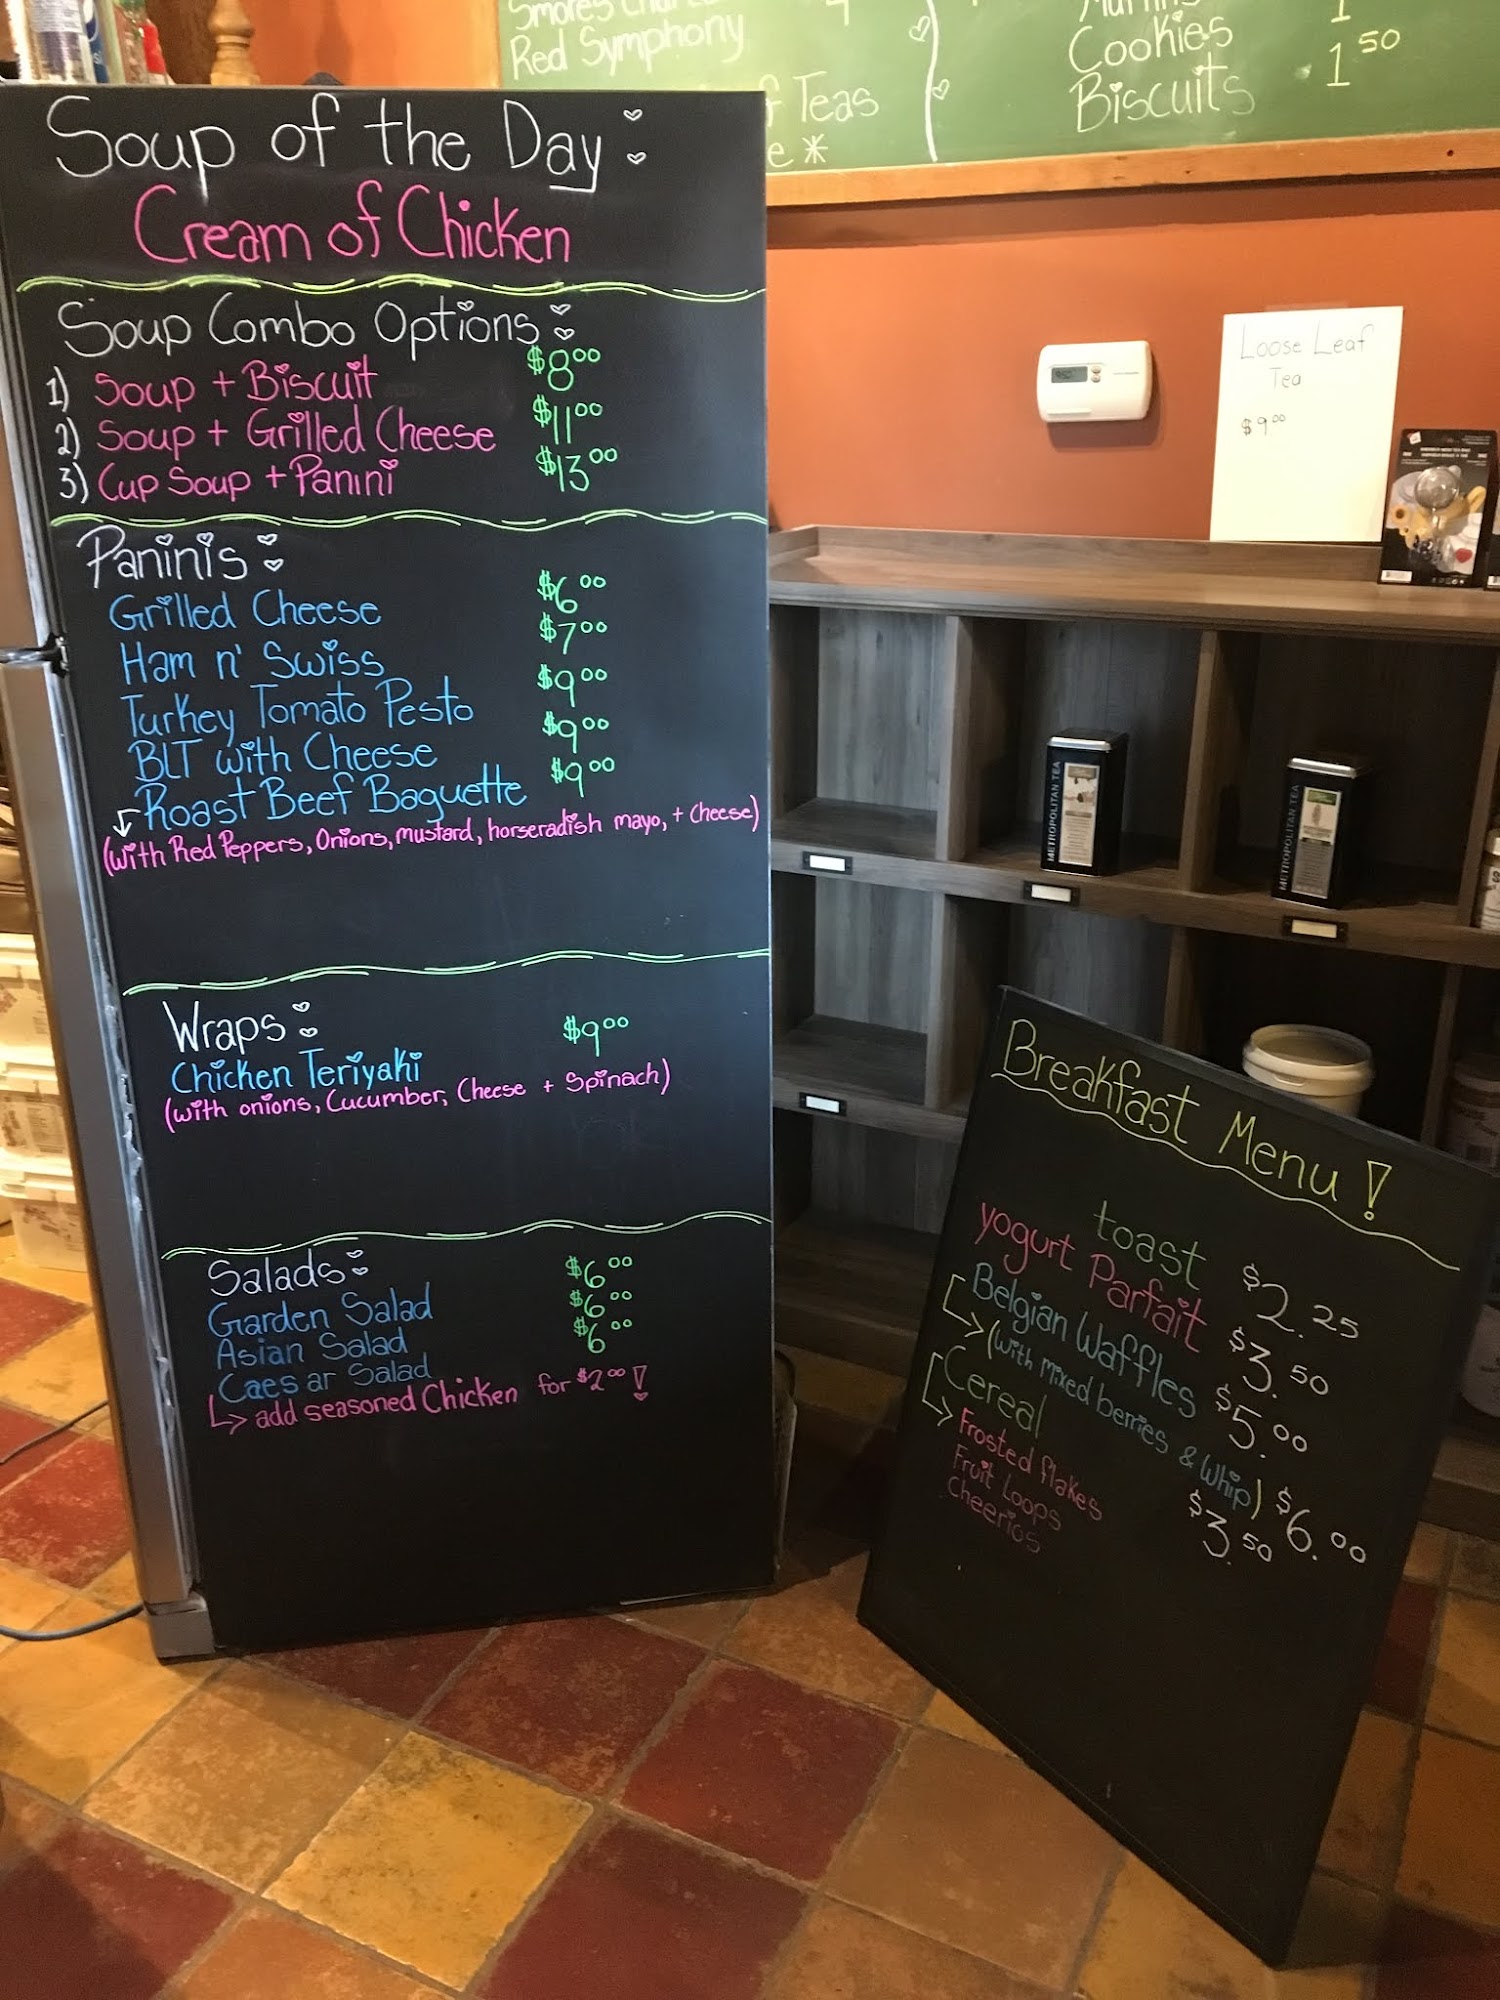 Smores
Red Symphony
Teas
Cookies 1
Biscuits 1 50
Soup of the Day:
Cream of Chicken
Soup Combo Options:
1) Soup + Biscuit $8 00
2) Soup + Grilled Cheese $11 00
3) Cup Soup + Panini $13 00
Paninis:
Grilled Cheese $6 00
Ham n' Swiss $7 00
Turkey Tomato Pesto $9 00
BLT with Cheese $9 00
Roast Beef Baguette $9 00
(with Red Peppers, Onions, mustard, horseradish mayo, + cheese)
Wraps:
Chicken Teriyaki $9 00
(with onions, Cucumber, Cheese + Spinach)
Salads:
Garden Salad $6 00
Asian Salad $6 00
Caesar Salad $6 00
add seasoned Chicken for $2 00 !
Loose Leaf
Tea
$9 00
METROPOLITAN TEA
METROPOLITAN TEA
Breakfast Menu!
toast $2.25
yogurt Parfait $3.50
Belgian Waffles $5.00
(with mixed berries & Whip) $6.00
Cereal $3.50
Frosted flakes
Fruit Loops
Cheerios